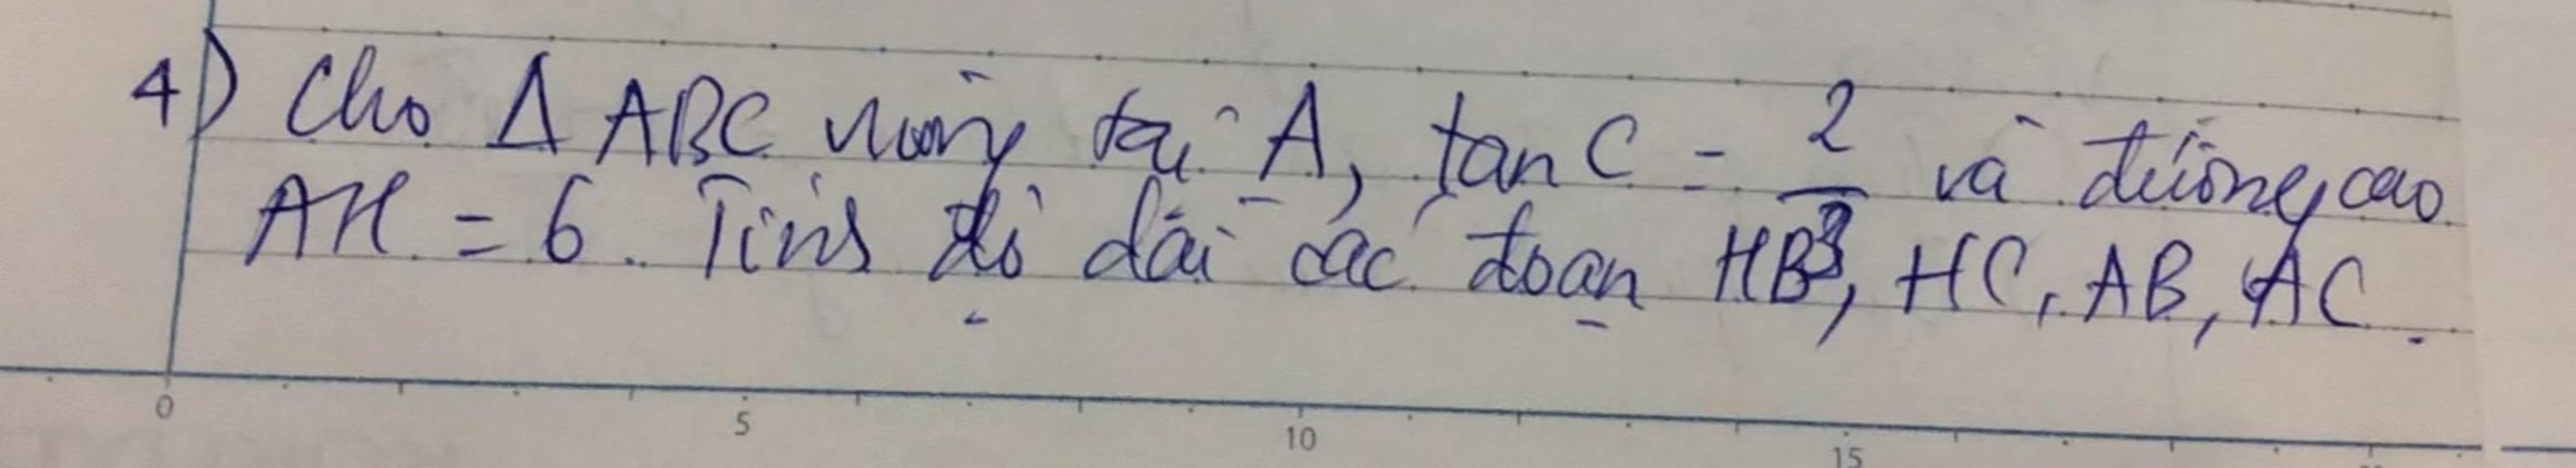 4) Cho Δ ABC vuông tại A, tan C = 2/3 và đường cao
AH = 6. Tính độ dài các đoạn HB, HC, AB, AC.
0 5 10 15